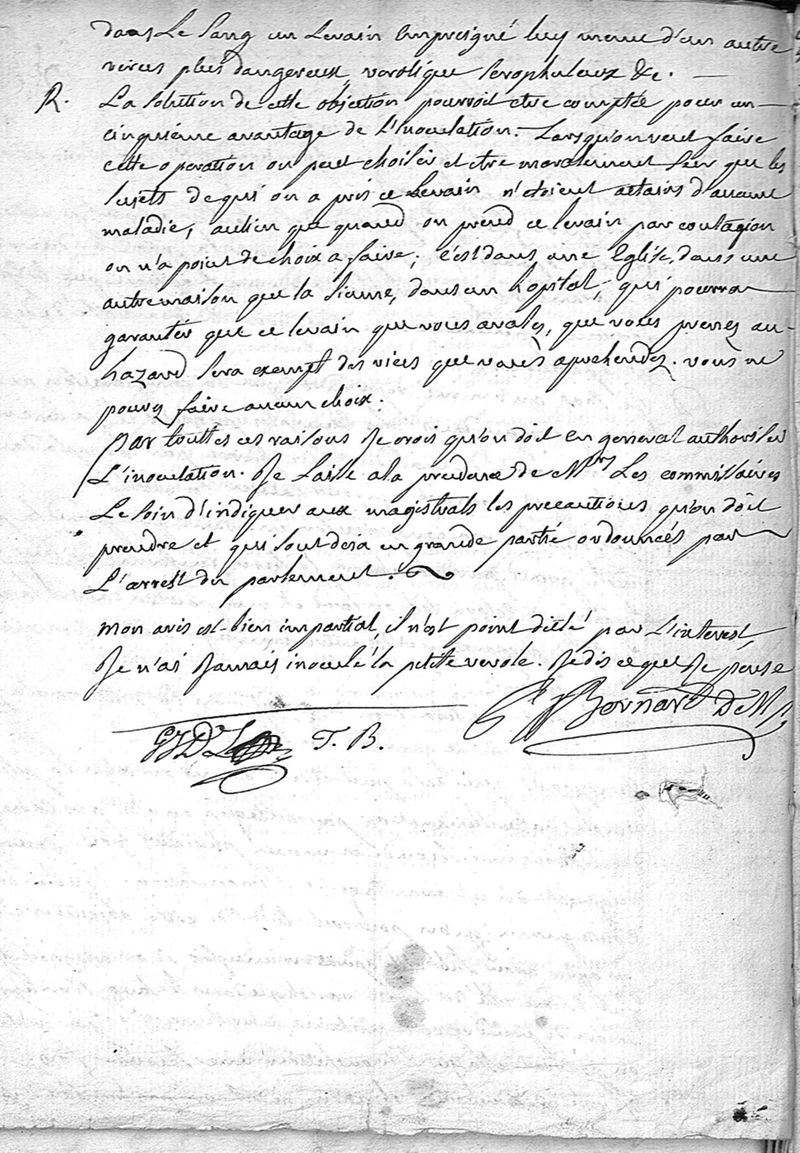 dans Le Sang un Levain Empreigné luy meme d'un autre
virus plus dangereux, verolique scrophuleux &c. —
R. La solution de cette objection pourroit etre comptée pour un
cinquiéme avantage de L'Inoculation. Lorsqu'on veut faire
cette operation on peut choisir et etre moralement seur que les
sujets de qui on a pris ce Levain n'étoient attains d'aucune
maladie, aulieu que quand on prend ce levain par contagion
on n'a point de choix a faire; c'est dans une Eglise, dans une
autre maison que la sienne, dans un hopital; qui pourra
garantir que ce levain que vous avalés, que vous prenes au
hazard sera exempt des vices que vous aprehendez. vous ne
pouvez faire aucun choix.
par touttes ces raisons Je crois qu'on doit en general authoriser
L'inoculation. Je laisse a la prudence de Mrs Les commissaires
Le soin d'indiquer aux magistrats les precautions qu'on doit
prendre et qui sont deja en grande partie ordonnées par
L'arrest du parlement.
mon avis est bien impartial, il n'est point dicté par L'interest,
Je n'ai Jamais inoculé la petite verole. Je dis ce que Je pense
Bernard D M
T. B.